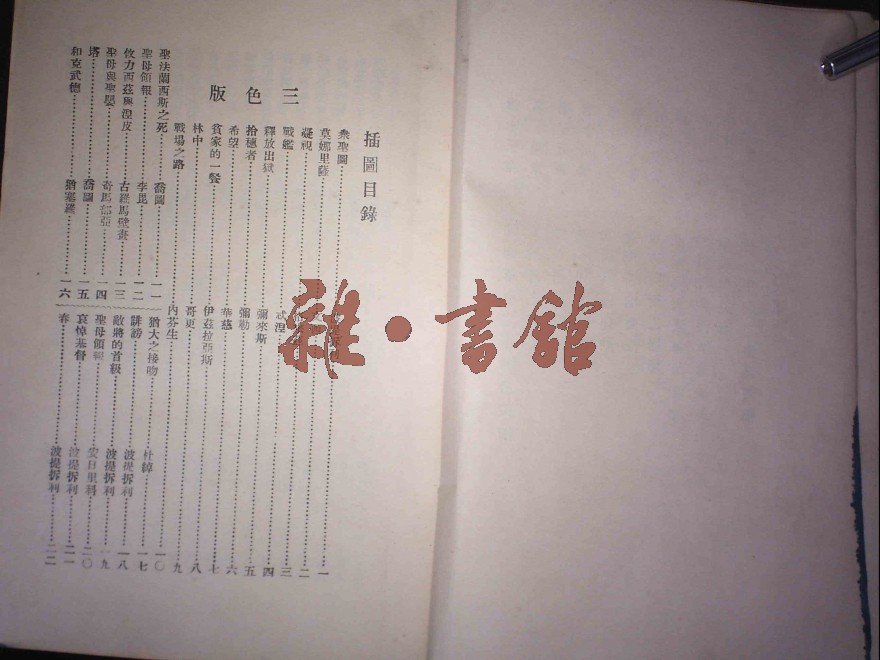 插圖目錄
三色版
眾聖圖……一
莫娜里薩……二
凝視……三
戰艦……忒涅……四
釋放出獄……彌來斯……五
拾穗者……彌勒……六
希望……華慈……七
貧家的一餐……伊茲拉亞斯……八
林中……哥更……九
戰場之路……內芬生……一〇
聖法蘭西斯之死……喬圖……一一
聖母領報……李毘……一二
攸力西茲與涅皮……古羅馬壁畫……一三
聖母與聖嬰……奇馬部亞……一四
塔……喬圖……一五
和克武德……猶塞羅……一六
猶大之接吻……杜婥……一七
誹謗……波提拆利……一八
敵將的首級……波提拆利……一九
聖母領報……安日里科……二〇
哀悼基督……波提拆利……二一
春……波提拆利……二二
雜·書館